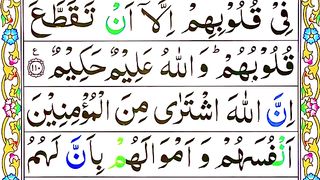 فِیْ قُلُوْبِهِمْ اِلَّاۤ اَنْ تَقَطَّعَ
قُلُوْبُهُمْ ؕ وَاللّٰهُ عَلِیْمٌ حَكِیْمٌ ﴿۱۱۰﴾ ع
اِنَّ اللّٰهَ اشْتَرٰی مِنَ الْمُؤْمِنِیْنَ
اَنْفُسَهُمْ وَ اَمْوَالَهُمْ بِاَنَّ لَهُمُ